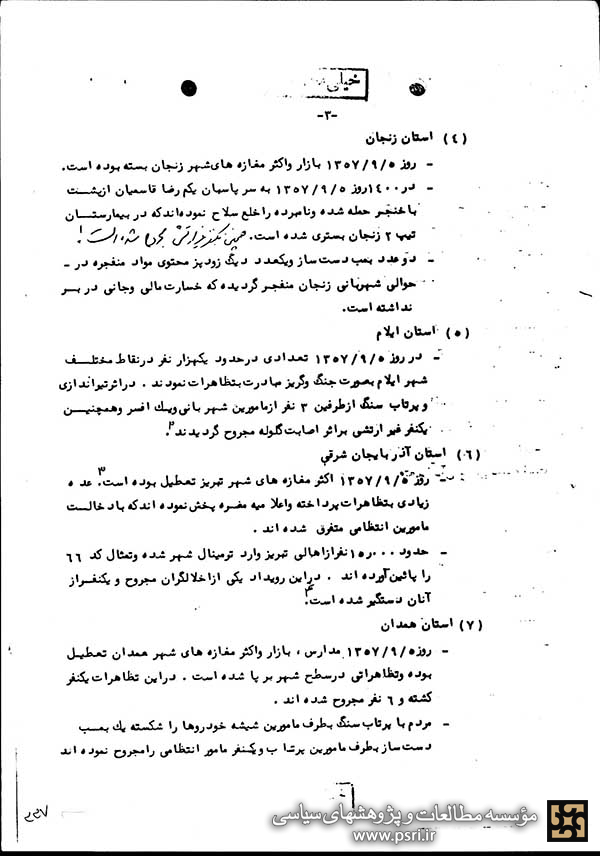 خیلی
-۳-
(۴) استان زنجان
- روز ۱۳۵۷/۹/۵ بازار واکثر مغازه های شهر زنجان بسته بوده است.
- در ۱۴۰۰ روز ۱۳۵۷/۹/۵ به سر پاسبان یکم رضا قاسمیان ازپشت
باخنجر حمله شده ونامبرده راخلع سلاح نموده اندکه در بیمارستان
تیپ ۲ زنجان بستری شده است.
- دوعدد بمب دست ساز ویکعدد دیگ زودپز محتوی مواد منفجره در -
حوالی شهربانی زنجان منفجر گردیده که خسارت مالی وجانی در بر
نداشته است.
(۵) استان ایلام
- در روز ۱۳۵۷/۹/۵ تعدادی درحدود یکهزار نفر درنقاط مختلف
شهر ایلام بصورت جنگ وگریز مبادرت بتظاهرات نمودند . دراثرتیراندازی
و پرتاب سنگ ازطرفین ۳ نفر ازمامورین شهربانی ویك افسر وهمچنین
یکنفر غیر ارتشی براثر اصابت گلوله مجروح گردیدند۲.
(۶) استان آذربایجان شرقی
- روز ۱۳۵۷/۹/۵ اکثر مغازه های شهر تبریز تعطیل بوده است۳. عده
زیادی بتظاهرات پرداخته واعلامیه مضره پخش نموده اندکه بادخالت
مامورین انتظامی متفرق شده اند .
- حدود ۱۵۰۰۰ نفرازاهالی تبریز وارد ترمینال شهر شده وتمثال کد ۶۶
را پائین آورده اند . دراین رویداد یکی ازاخلالگران مجروح و یکنفراز
آنان دستگیر شده است۴.
(۷) استان همدان
- روز ۱۳۵۷/۹/۵ مدارس ، بازار واکثر مغازه های شهر همدان تعطیل
بوده وتظاهراتی درسطح شهر برپا شده است . دراین تظاهرات یکنفر
کشته و ۶ نفر مجروح شده اند .
- مردم با پرتاب سنگ بطرف مامورین شیشه خودروها را شکسته یك بمب
دست ساز بطرف مامورین پرتاب ویکنفر مامور انتظامی رامجروح نموده اند
مؤسسه مطالعات و پژوهشهای سیاسی
www.psri.ir